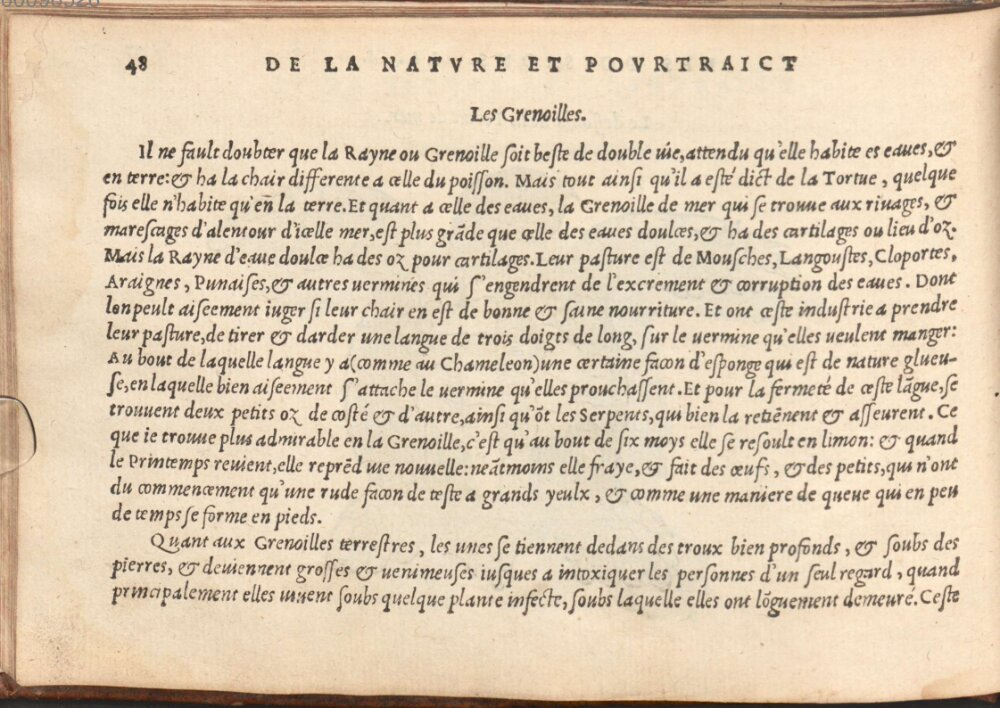 48 DE LA NATVRE ET POVRTRAICT
Les Grenoilles.
Il ne fault doubter que la Rayne ou Grenoille ſoit beſte de double vie, attendu qu'elle habite es eaues, &
en terre: & ha la chair differente a celle du poiſſon. Mais tout ainſi qu'il a eſté dict de la Tortue, quelque
fois elle n'habite qu'en̄ la terre. Et quant a celle des eaues, la Grenoille de mer qui ſe trouue aux riuages, &
mareſcages d'alentour d'icelle mer, eſt plus grāde que celle des eaues doulces, & ha des cartilages ou lieu d'oz.
Mais la Rayne d'eaue doulce ha des oz pour cartilages. Leur paſture eſt de Mouſches, Langouſtes, Cloportes,
Araignes, Punaiſes, & autres vermines qui ſ'engendrent de l'excrement & corruption des eaues. Dont
lon peult aiſeement iuger ſi leur chair en eſt de bonne & ſaine nourriture. Et ont ceſte induſtrie a prendre
leur paſture, de tirer & darder une langue de trois doigts de long, ſur le vermine qu'elles veulent manger:
Au bout de laquelle langue y a (comme au Chameleon) une certaine facon d'eſponge qui eſt de nature glueu-
ſe, en laquelle bien aiſeement ſ'attache le vermine qu'elles prouchaſſent. Et pour la fermeté de ceſte lāgue, ſe
trouuent deux petits oz de coſté & d'autre, ainſi qu'ōt les Serpents, qui bien la retiēnent & aſſeurent. Ce
que ie trouue plus admirable en la Grenoille, c'eſt qu'au bout de ſix moys elle ſe reſoult en limon: & quand
le Printemps reuient, elle reprēd vie nouuelle: neātmoins elle fraye, & fait des œufs, & des petits, qui n'ont
du commencement qu'une rude facon de teſte a grands yeulx, & comme une maniere de queue qui en peu
de temps ſe forme en pieds.
Quant aux Grenoilles terreſtres, les unes ſe tiennent dedans des troux bien profonds, & ſoubs des
pierres, & deuiennent groſſes & venimeuſes iuſques a intoxiquer les perſonnes d'un ſeul regard, quand
principalement elles viuent ſoubs quelque plante infecte, ſoubs laquelle elles ont lōguement demeuré. Ceſte